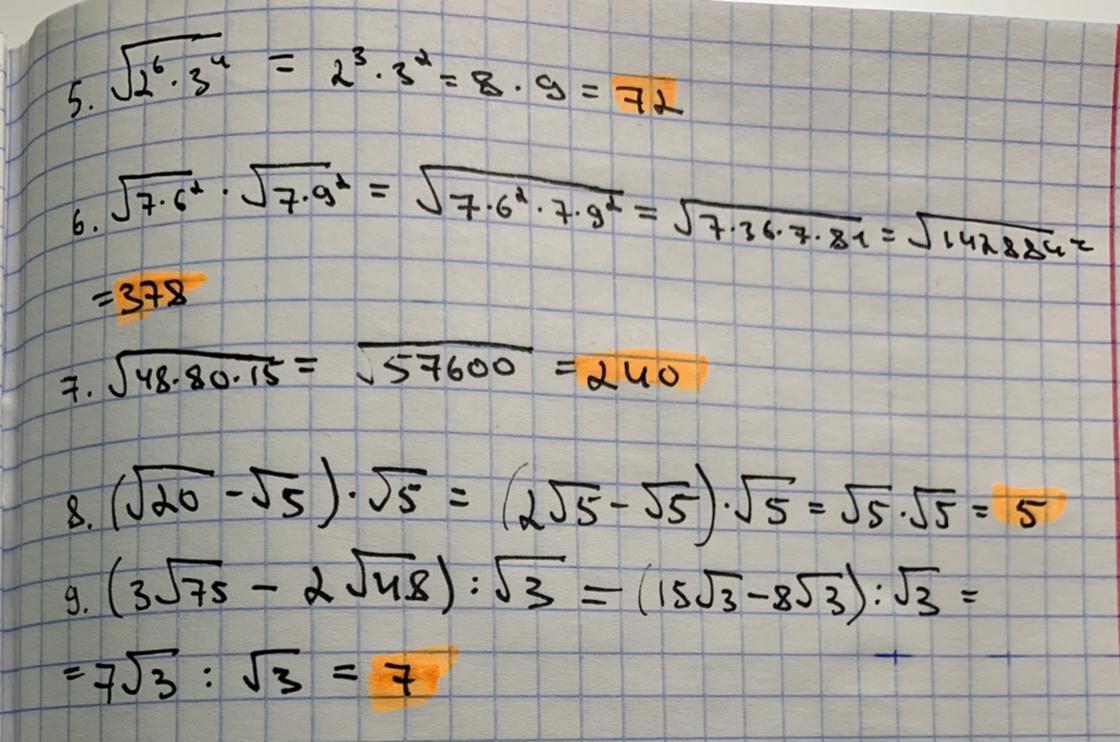 5. √(2⁶·3⁴) = 2³·3² = 8·9 = 72
6. √(7·6²)·√(7·9²) = √(7·6²·7·9²) = √(7·36·7·81) = √142884 =
= 378
7. √(48·80·15) = √57600 = 240
8. (√20 - √5)·√5 = (2√5 - √5)·√5 = √5·√5 = 5
9. (3√75 - 2√48) : √3 = (15√3 - 8√3) : √3 =
= 7√3 : √3 = 7